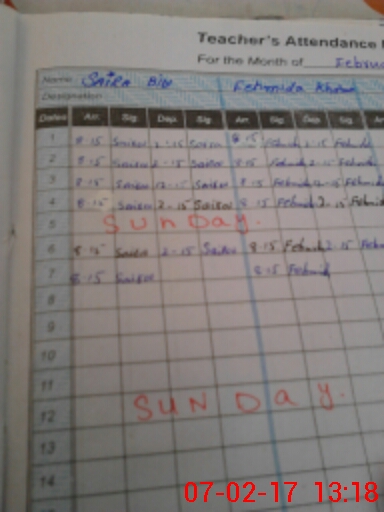 Teacher's Attendance
For the Month of Februa
Name SAIRA BIBI Fehmida Khan
Designation
Dates Arr. Sig. Dep. Sig. Arr. Sig. Dep. Sig. Arr
1 8-15 Saira 2-15 Saira 8-15 Fehmid 2-15 Fehmid
2 8-15 Saira 2-15 Saira 8-15 Fehmid 2-15 Fehmid
3 8-15 Saira 12-15 Saira 8-15 Fehmid 12-15 Fehmid
4 8-15 Saira 2-15 Saira 8-15 Fehmid 2-15 Fehmid
5 Sunday.
6 8-15 Saira 2-15 Saira 8-15 Fehmid 2-15 Fehm
7 8-15 Saira 8-15 Fehmid
8
9
10
11
12 SUNDay.
13
14
07-02-17 13:18